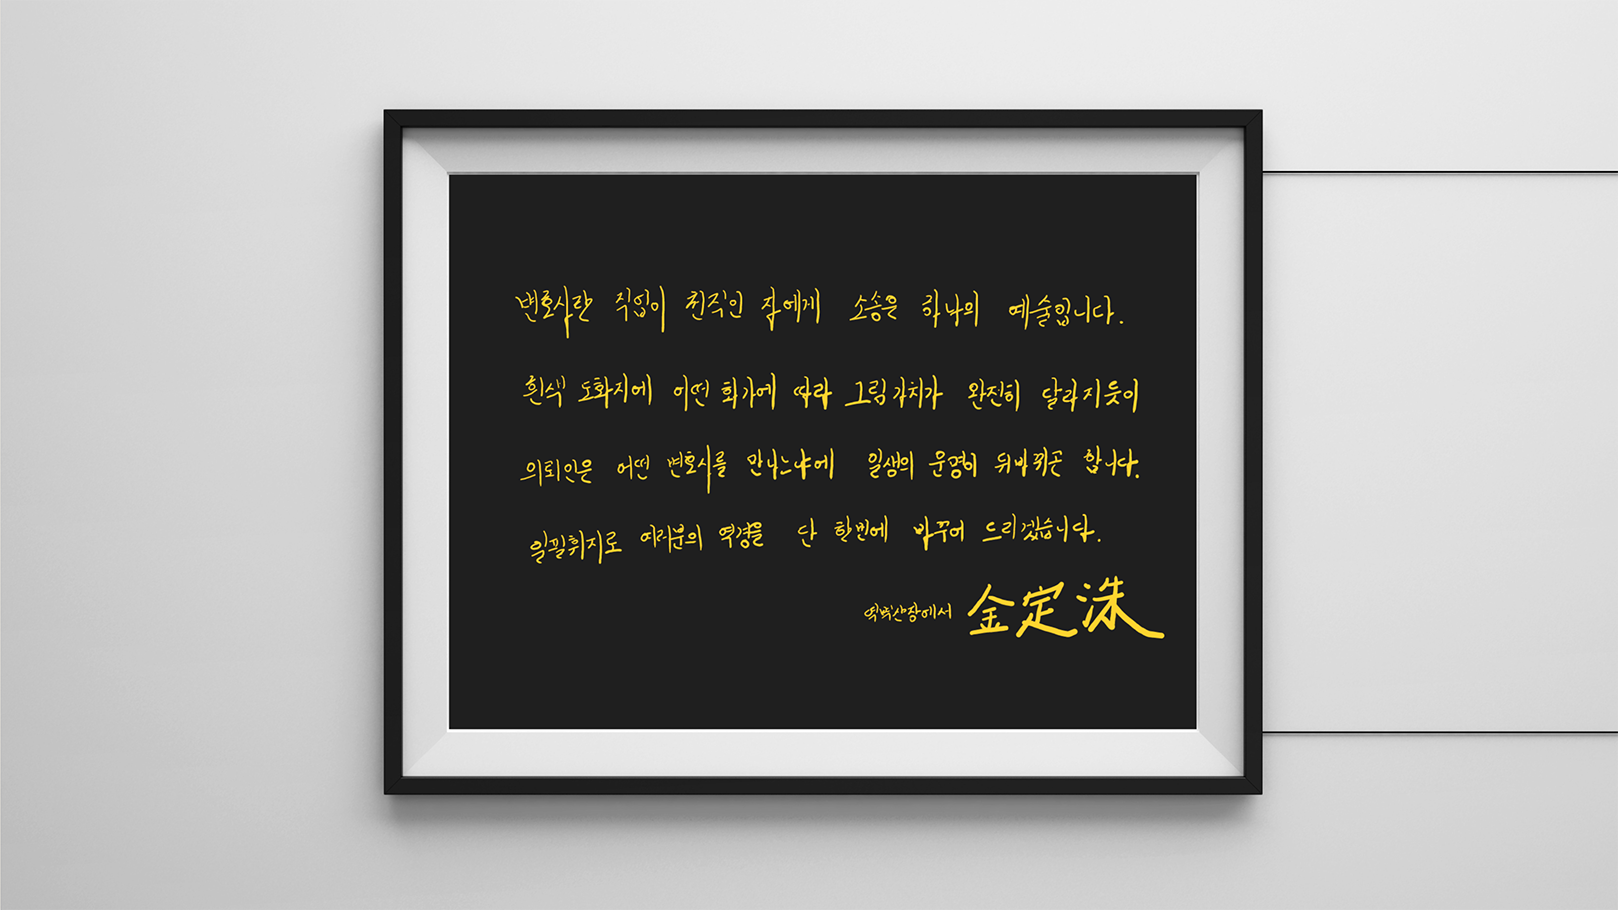 변호사란 직업이 천직인 자에게 소송은 하나의 예술입니다.
흰색 도화지에 어떤 화가에 따라 그림 가치가 완전히 달라지듯이
의뢰인은 어떤 변호사를 만나느냐에 일생의 운명이 뒤바뀌곤 합니다.
일필휘지로 여러분의 역경을 단 한번에 바꾸어 드리겠습니다.
金定洙